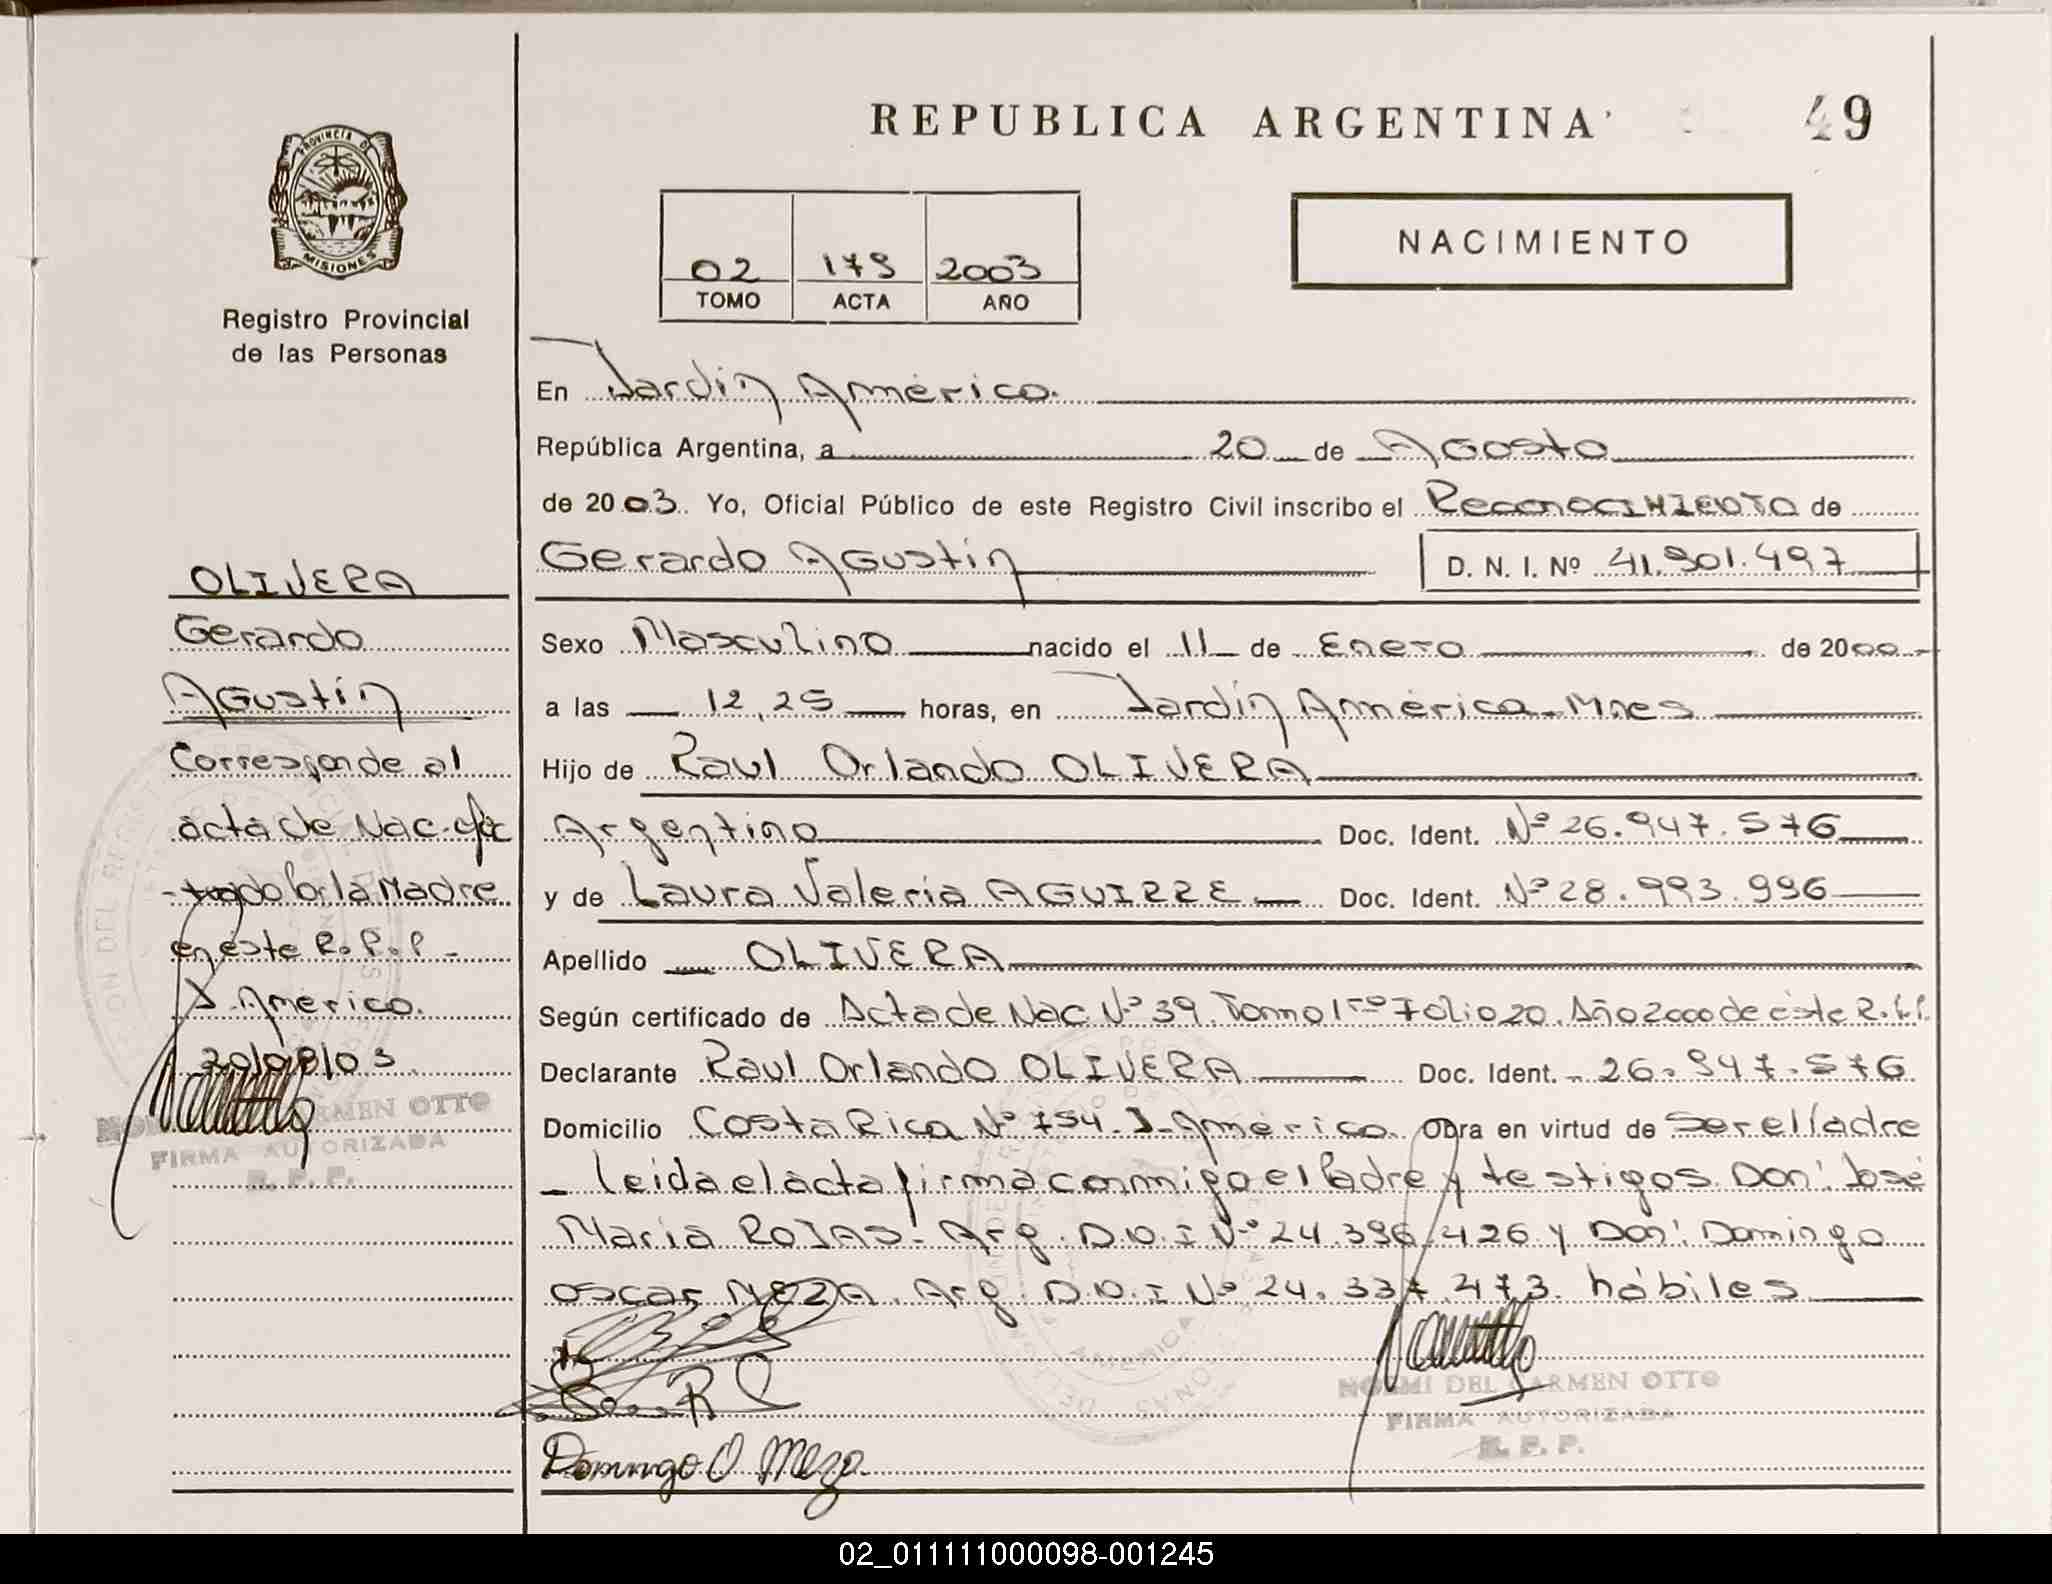 REPUBLICA ARGENTINA
49
PROVINCIA DE
MISIONES
Registro Provincial
de las Personas
02 179 2003
TOMO ACTA AÑO
NACIMIENTO
En Jardín América.
República Argentina, a 20 de Agosto
de 2003. Yo, Oficial Público de este Registro Civil inscribo el Reconocimiento de
Gerardo Agustín D. N. I. Nº 41.901.497
Sexo Masculino nacido el 11 de Enero de 2000
a las 12,25 horas, en Jardín América-Mnes
Hijo de Raul Orlando OLIVERA
Argentino Doc. Ident. Nº 26.947.576
y de Laura Valeria AGUIRRE Doc. Ident. Nº 28.993.996
Apellido OLIVERA
Según certificado de Acta de Nac Nº 39. Tomo 1ro Folio 20. Año 2000 de éste R.P.P.
Declarante Raul Orlando OLIVERA Doc. Ident. 26.947.576
Domicilio Costa Rica Nº 754-J-América Obra en virtud de Ser el Padre
- Leida el acta firma conmigo el Padre y testigos Don: José
Maria ROJAS. Arg. D.N.I Nº 24.396.426 y Don: Domingo
Oscar MEZA. Arg. D.N.I Nº 24.337.473. hábiles
Domingo O Meza
NOEMI DEL CARMEN OTTO
FIRMA AUTORIZADA
R. P. P.
OLIVERA
Gerardo
Agustín
Corresponde al
acta de Nac. efec
-tuado por la Madre
en éste R.P.P-
J. América.
20/08/03
CARMEN OTTO
FIRMA AUTORIZADA
R. P. P.
02_011111000098-001245